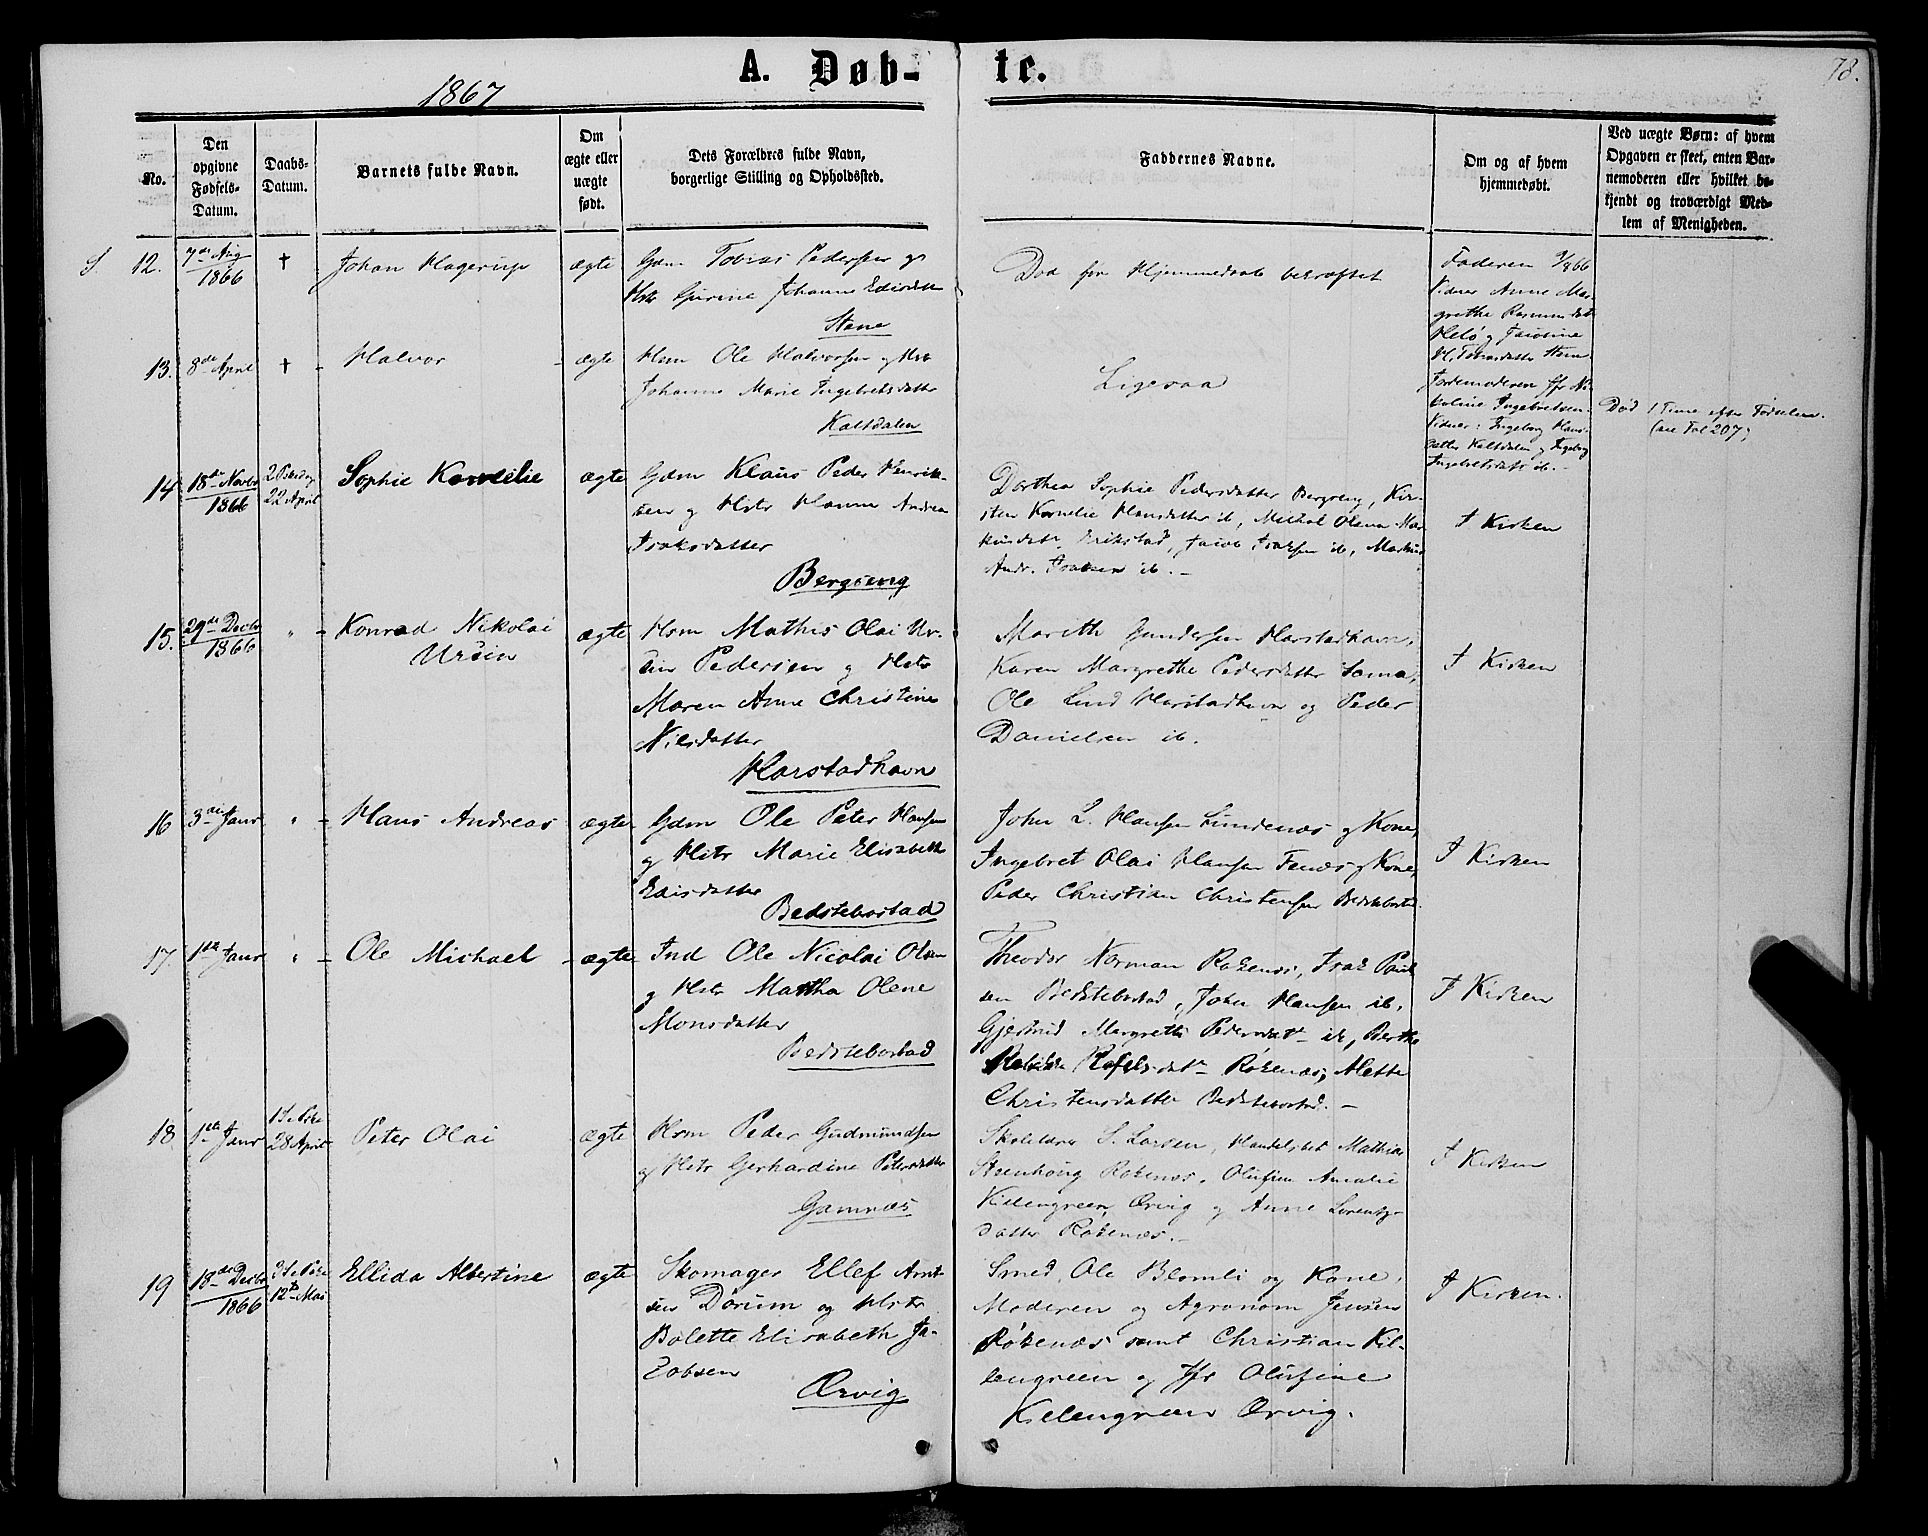 78.
A. Døb- te.
1867
No.
Den opgivne Fødsels-Datum.
Daabs-Datum.
Barnets fulde Navn.
Om ægte eller uægte født.
Dets Forældres fulde Navn, borgerlige Stilling og Opholdssted.
Faddernes Navne.
Om og af hvem hjemmedøbt.
Ved uægte Børn: af hvem Opgaven er skeet, enten Barnemoderen eller hvilket bekjendt og troværdigt Medlem af Menigheden.
S. 12. 7de Aug 1866 † Johan Hagerup ægte
Gdm Tobias Pedersen og
Hstr Gurine Johanne Edisdatt
Stene
Død før Hjemmedaab bekræftet
Faderen 9/8 66
Vidner Anne Mar-
grethe Rasmusdat
13. 8de April † - Halvor - ægte
Hsm Ole Halvorsen og Hstr
Johanne Marie Ingebretsdatter
Kaltdalen
Ligesaa
Jordemoderen Jfr Ni-
koline Ingebretsen.
Vidner: Ingeborg Hans-
datter Kaltdalen og Ingeborg
Ingebretsdatt ib. -
Død 1 Time efter Fødselen.
(se Fol 207)
14 18de Novbr 1866 2 Paaskedag 22 April Sophie Kornelie ægte
Gdm Klaus Peder Henrik-
sen og Hstr Hanna Andrea
Isaksdatter
Bergseng
Dorthea Sophie Pedersdatter Bergseng, Kir-
sten Kornelie Hansdatter ib, Michal Olena Mar-
kusdatt Erikstad, Jacob Isaksen ib, Markus
Andr. Isaksen ib. -
I Kirken
15. 29de Decbr 1866 " - Konrad Nikolai
Ursin
ægte
Hsm Mathis Olai Ur-
sin Pedersen og Hstr
Maren Anne Christine
Nilsdatter
Harstadhavn
Marith Gundersen Harstadhavn,
Karen Margrethe Pedersdatter Sama,
Ole Lund Harstadhavn og Peder
Danielsen ib.
I Kirken
16 3die Janr " - Hans Andreas ægte
Gdm Ole Peter Hansen
og Hstr Marie Elisabeth
Edisdatter
Bedstebostad
John L. Hansen Lundenæs og Kone,
Ingebret Olai Hansen Fenæs og Kone,
Peder Christian Christensen Bedstebostad
I Kirken
17. 1ste Janr " - Ole Michael - ægte
Ind Ole Nicolai Olsen
og Hstr Martha Olene
Monsdatter
Bedstebostad
Theodor Norman Røkenæs, Isak Paul-
sen Bedstebostad, John Hansen ib,
Gjertrud Margrethe Pedersdatr ib, Berthe
Rafelsdatr Røkenæs, Mette
Christensdatter Bedstebostad. -
I Kirken
18 1ste Janr 1 S. e. Paske 28 April Peter Olai ægte
Hsm Peder Gudmundsen
og Hstr Gerhardine Petersdatter
Gamnæs
Skolelærer S. Larsen, Handelsbet Mathias
Steenhoug Røkenæs, Olufine Amalie
Killengreen, Ørvig og Anne Lorentz-
datter Røkenæs. -
I Kirken
19 18de Decbr 1866 3 S. e. Paske 12te Mai Ellida Albertine ægte
Skomager Ellef Arnt-
sen Dørum og Hstr
Bolette Elisabeth Ja-
cobsen
Ørvig
Smed Ole Blomli og Kone,
Moderen og Agronom Jensen
Røkenæs samt Christian Kil-
lengreen og Jfr Olufine
Killengreen Ørvig.
I Kirken.